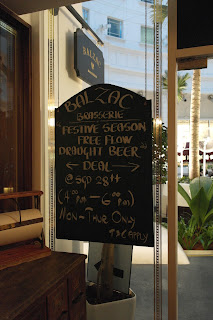 BALZAC
BALZAC
BRASSERIE
FESTIVE SEASON
FREE FLOW
DRAUGHT BEER
← DEAL →
@ SGD 28++
(4:00 PM - 6:00 PM)
MON-THUR ONLY
T&C APPLY